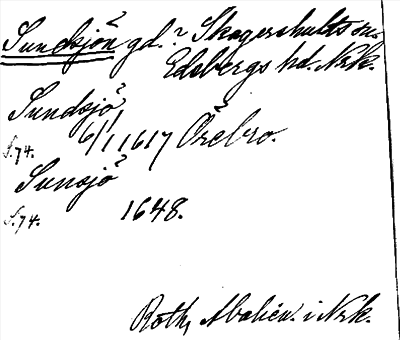 Sundsjön gd.? Skagershults sn.
Edsbergs hd. Nrk.
Sundsjö
S.74. 6/1 1617 Örebro.
Sunsjö
S.74. 1648.
Roth, i Nrk.